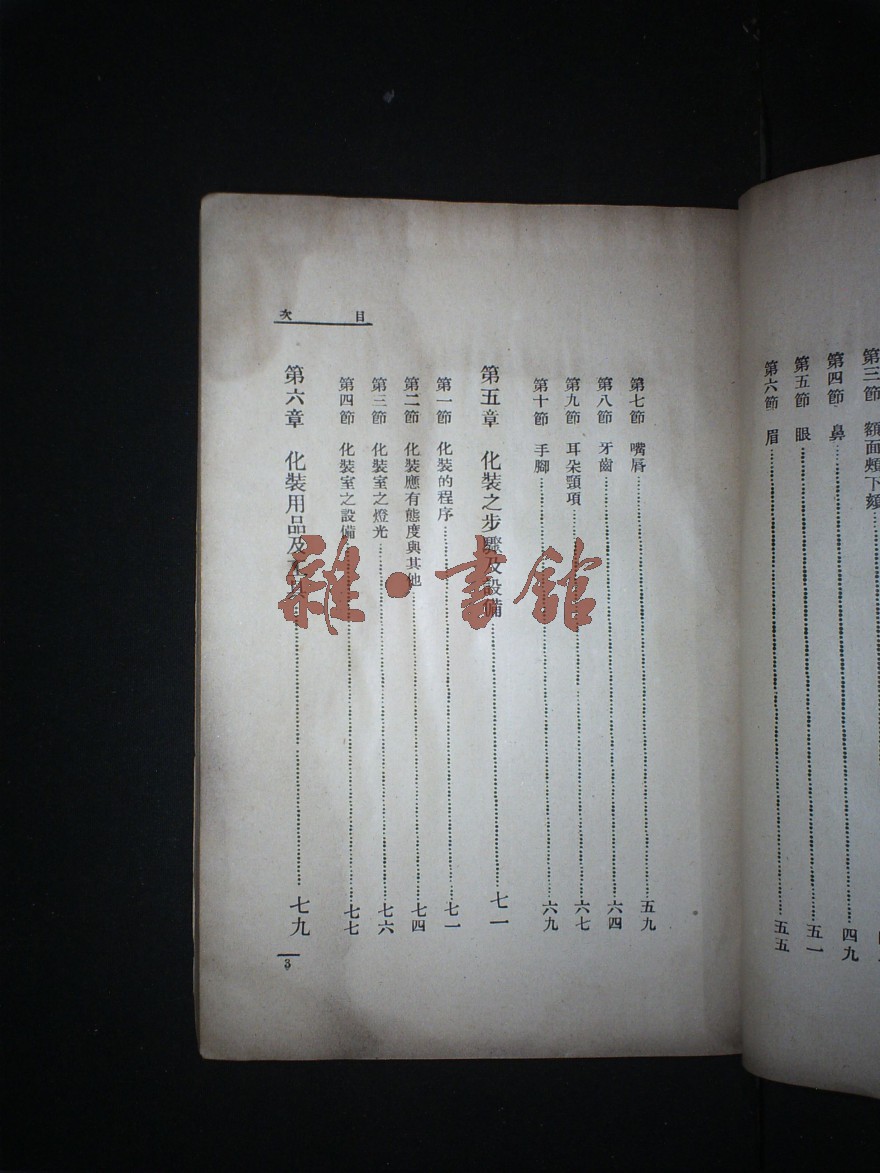 第三節 額面頰下頦
第四節 鼻 四九
第五節 眼 五一
第六節 眉 五五
目次
第七節 嘴唇 五九
第八節 牙齒 六四
第九節 耳朵頸項 六七
第十節 手腳 六九
第五章 化裝之步驟及設備 七一
第一節 化裝的程序 七一
第二節 化裝應有態度與其他 七四
第三節 化裝室之燈光 七六
第四節 化裝室之設備 七七
第六章 化裝用品及工具 七九
3
雜·書館